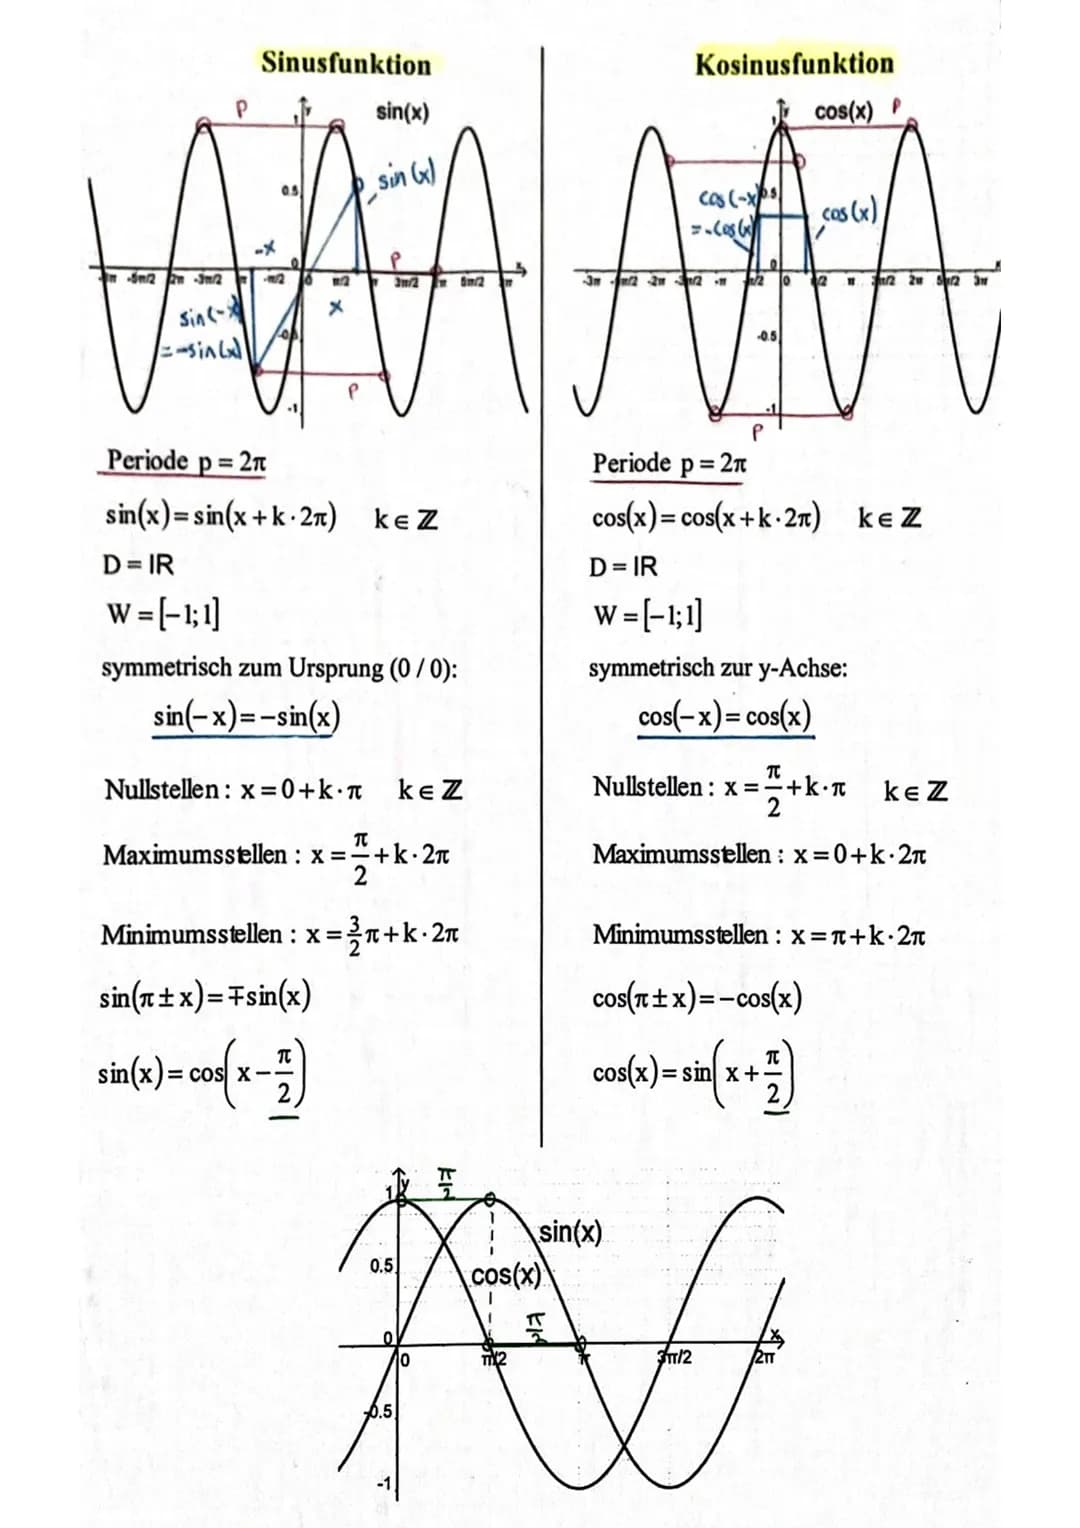 Sinusfunktion
P
y
sin(x)
1
0.5
sin(x)
-x
P
0
-5π/2 -2π -3π/2 -π -π/2 0 π/2 π 3π/2 2π 5π/2 3π
x
sin(-x)
=-sin(x)
-1
P
Periode p = 2π
sin(x) = sin(x + k · 2π) k ∈ ℤ
D = IR
W = [-1; 1]
symmetrisch zum Ursprung (0 / 0):
sin(-x) = -sin(x)
Nullstellen : x = 0 + k · π k ∈ ℤ
Maximumsstellen : x = π/2 + k · 2π
Minimumsstellen : x = 3/2 π + k · 2π
sin(π ± x) = ∓sin(x)
sin(x) = cos(x - π/2)
Kosinusfunktion
y
cos(x) P
1
cos(-x) 0.5
=-cos(x)
cos(x)
0
-3π -5π/2 -2π -3π/2 -π -π/2 0 π/2 π 3π/2 2π 5π/2 3π
-0.5
-1
P
Periode p = 2π
cos(x) = cos(x + k · 2π) k ∈ ℤ
D = IR
W = [-1; 1]
symmetrisch zur y-Achse:
cos(-x) = cos(x)
Nullstellen : x = π/2 + k · π k ∈ ℤ
Maximumsstellen : x = 0 + k · 2π
Minimumsstellen : x = π + k · 2π
cos(π ± x) = -cos(x)
cos(x) = sin(x + π/2)
1 y π/2
sin(x)
0.5
cos(x)
π/2
0 x
0 π/2 π 3π/2 2π
-0.5
-1